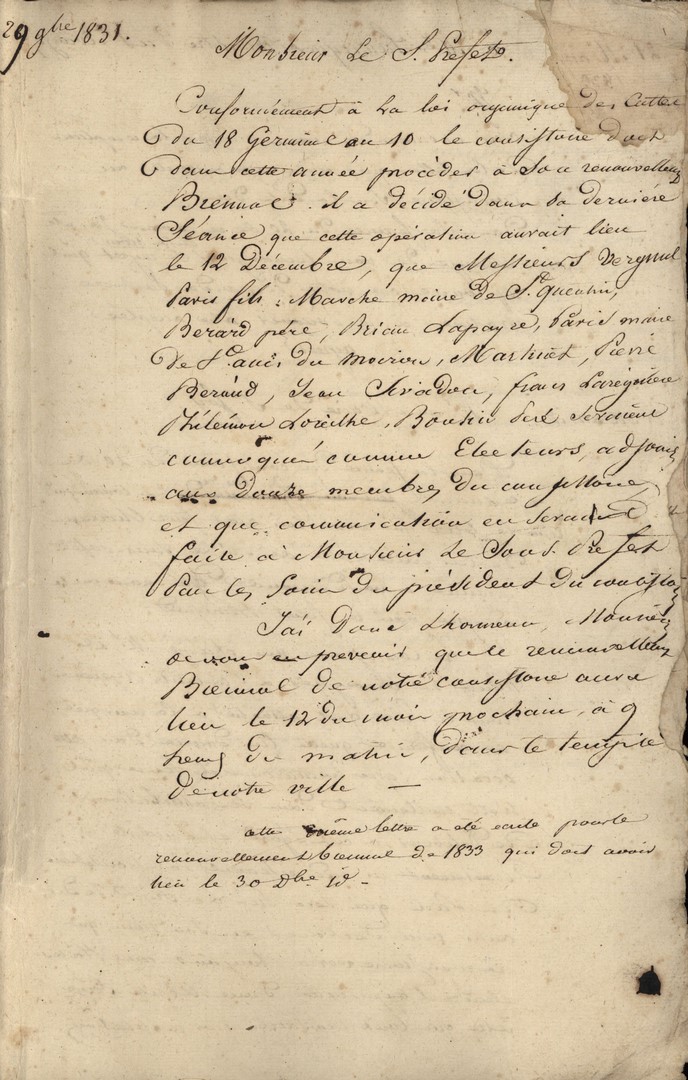 29 9bre 1831.
Monsieur Le S. Prefet.
Conformément à La loi organique des Cultes
Du 18 Germinal an 10 le consistoire doit
Dans cette année procéder à Son renouvellem
Biennal. il a décidé dans Sa dernière
Séance que cette opération aurait lieu
le 12 Décembre, que Messieurs
Paris fils, Marche maire de St. quentin,
Berard père, Briau Lapeyre, Paris maire
De St. du moiron, Martinet, Pierre
Beraud, Jean, frans
Philémon, Boutin Seraient
convoqués comme Electeurs, adjoints
aux Douze membres du consistoire,
et que communication en Serait
faite à Monsieur Le Sous. Prefet
Par les Soins du président du consistoire
J'ai Donc L'honneur, Monsieur
de vous en prevenir que le renouvellem
Biennal de notre consistoire aura
lieu le 12 du mois prochain, à 9
heures du matin, dans le temple
de notre ville —
cette même lettre a été ecrite pour le
renouvellement biennal de 1833 qui doit avoir
lieu le 30 Dbre id -